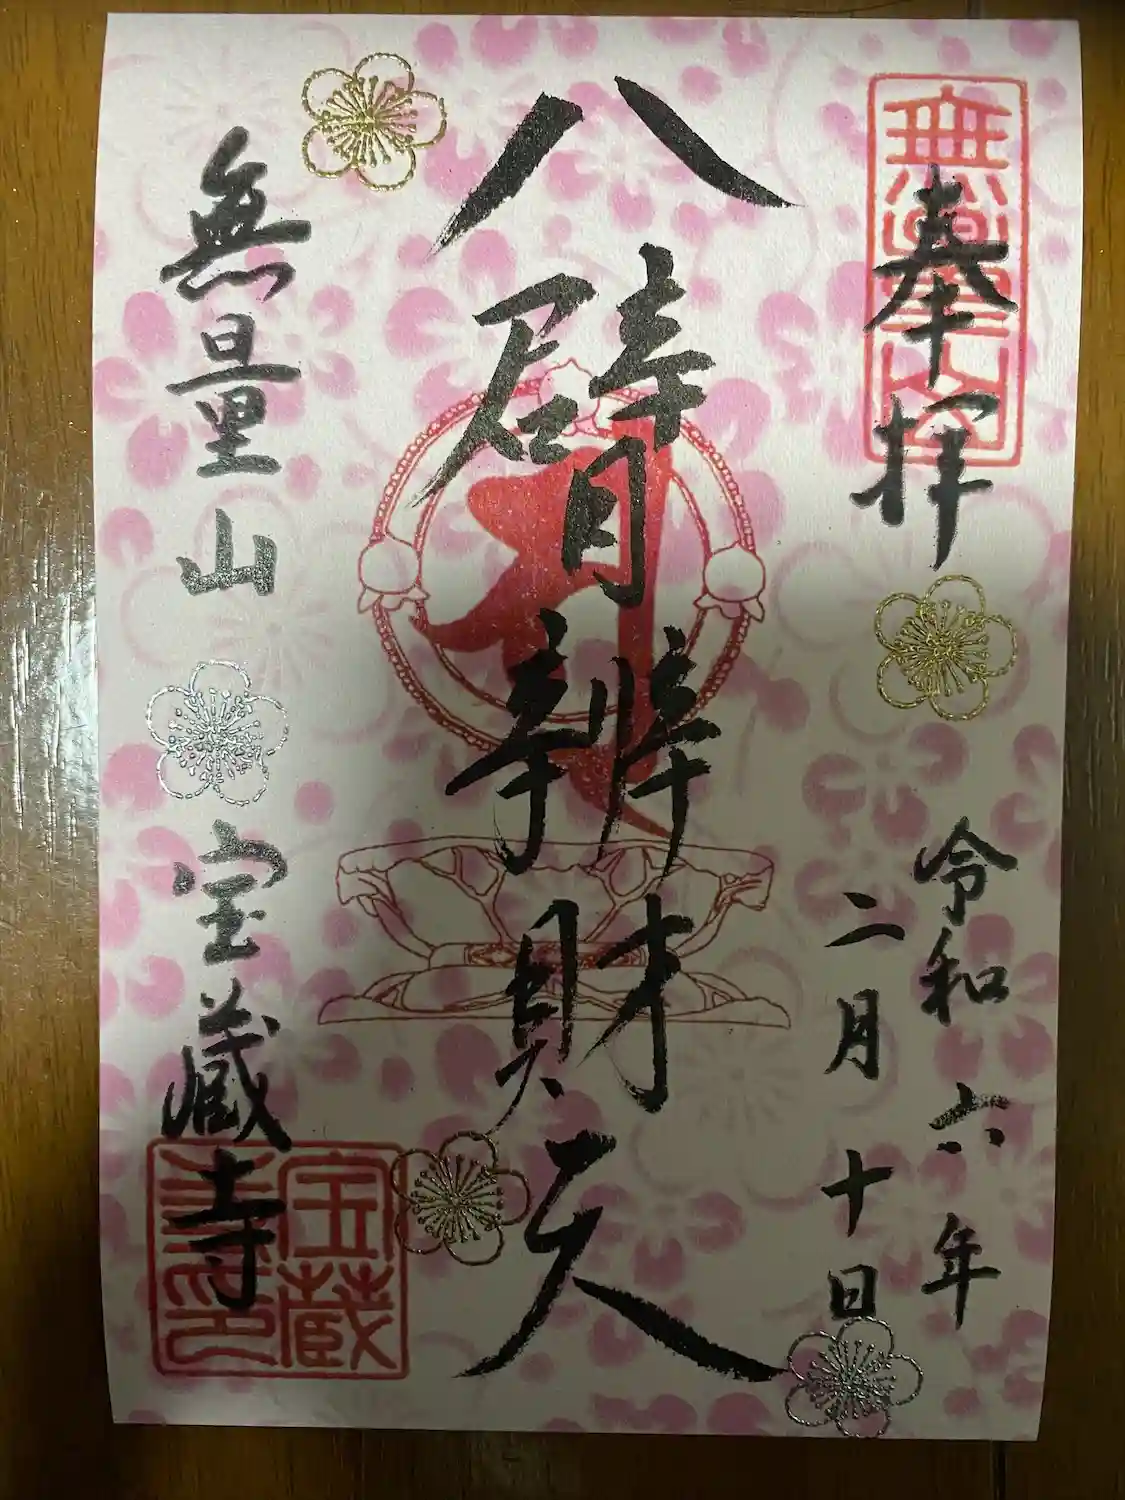 奉拝
無量山
令和六年
二月十日
八臂辨財天
無量山
宝蔵寺
宝蔵
寺印